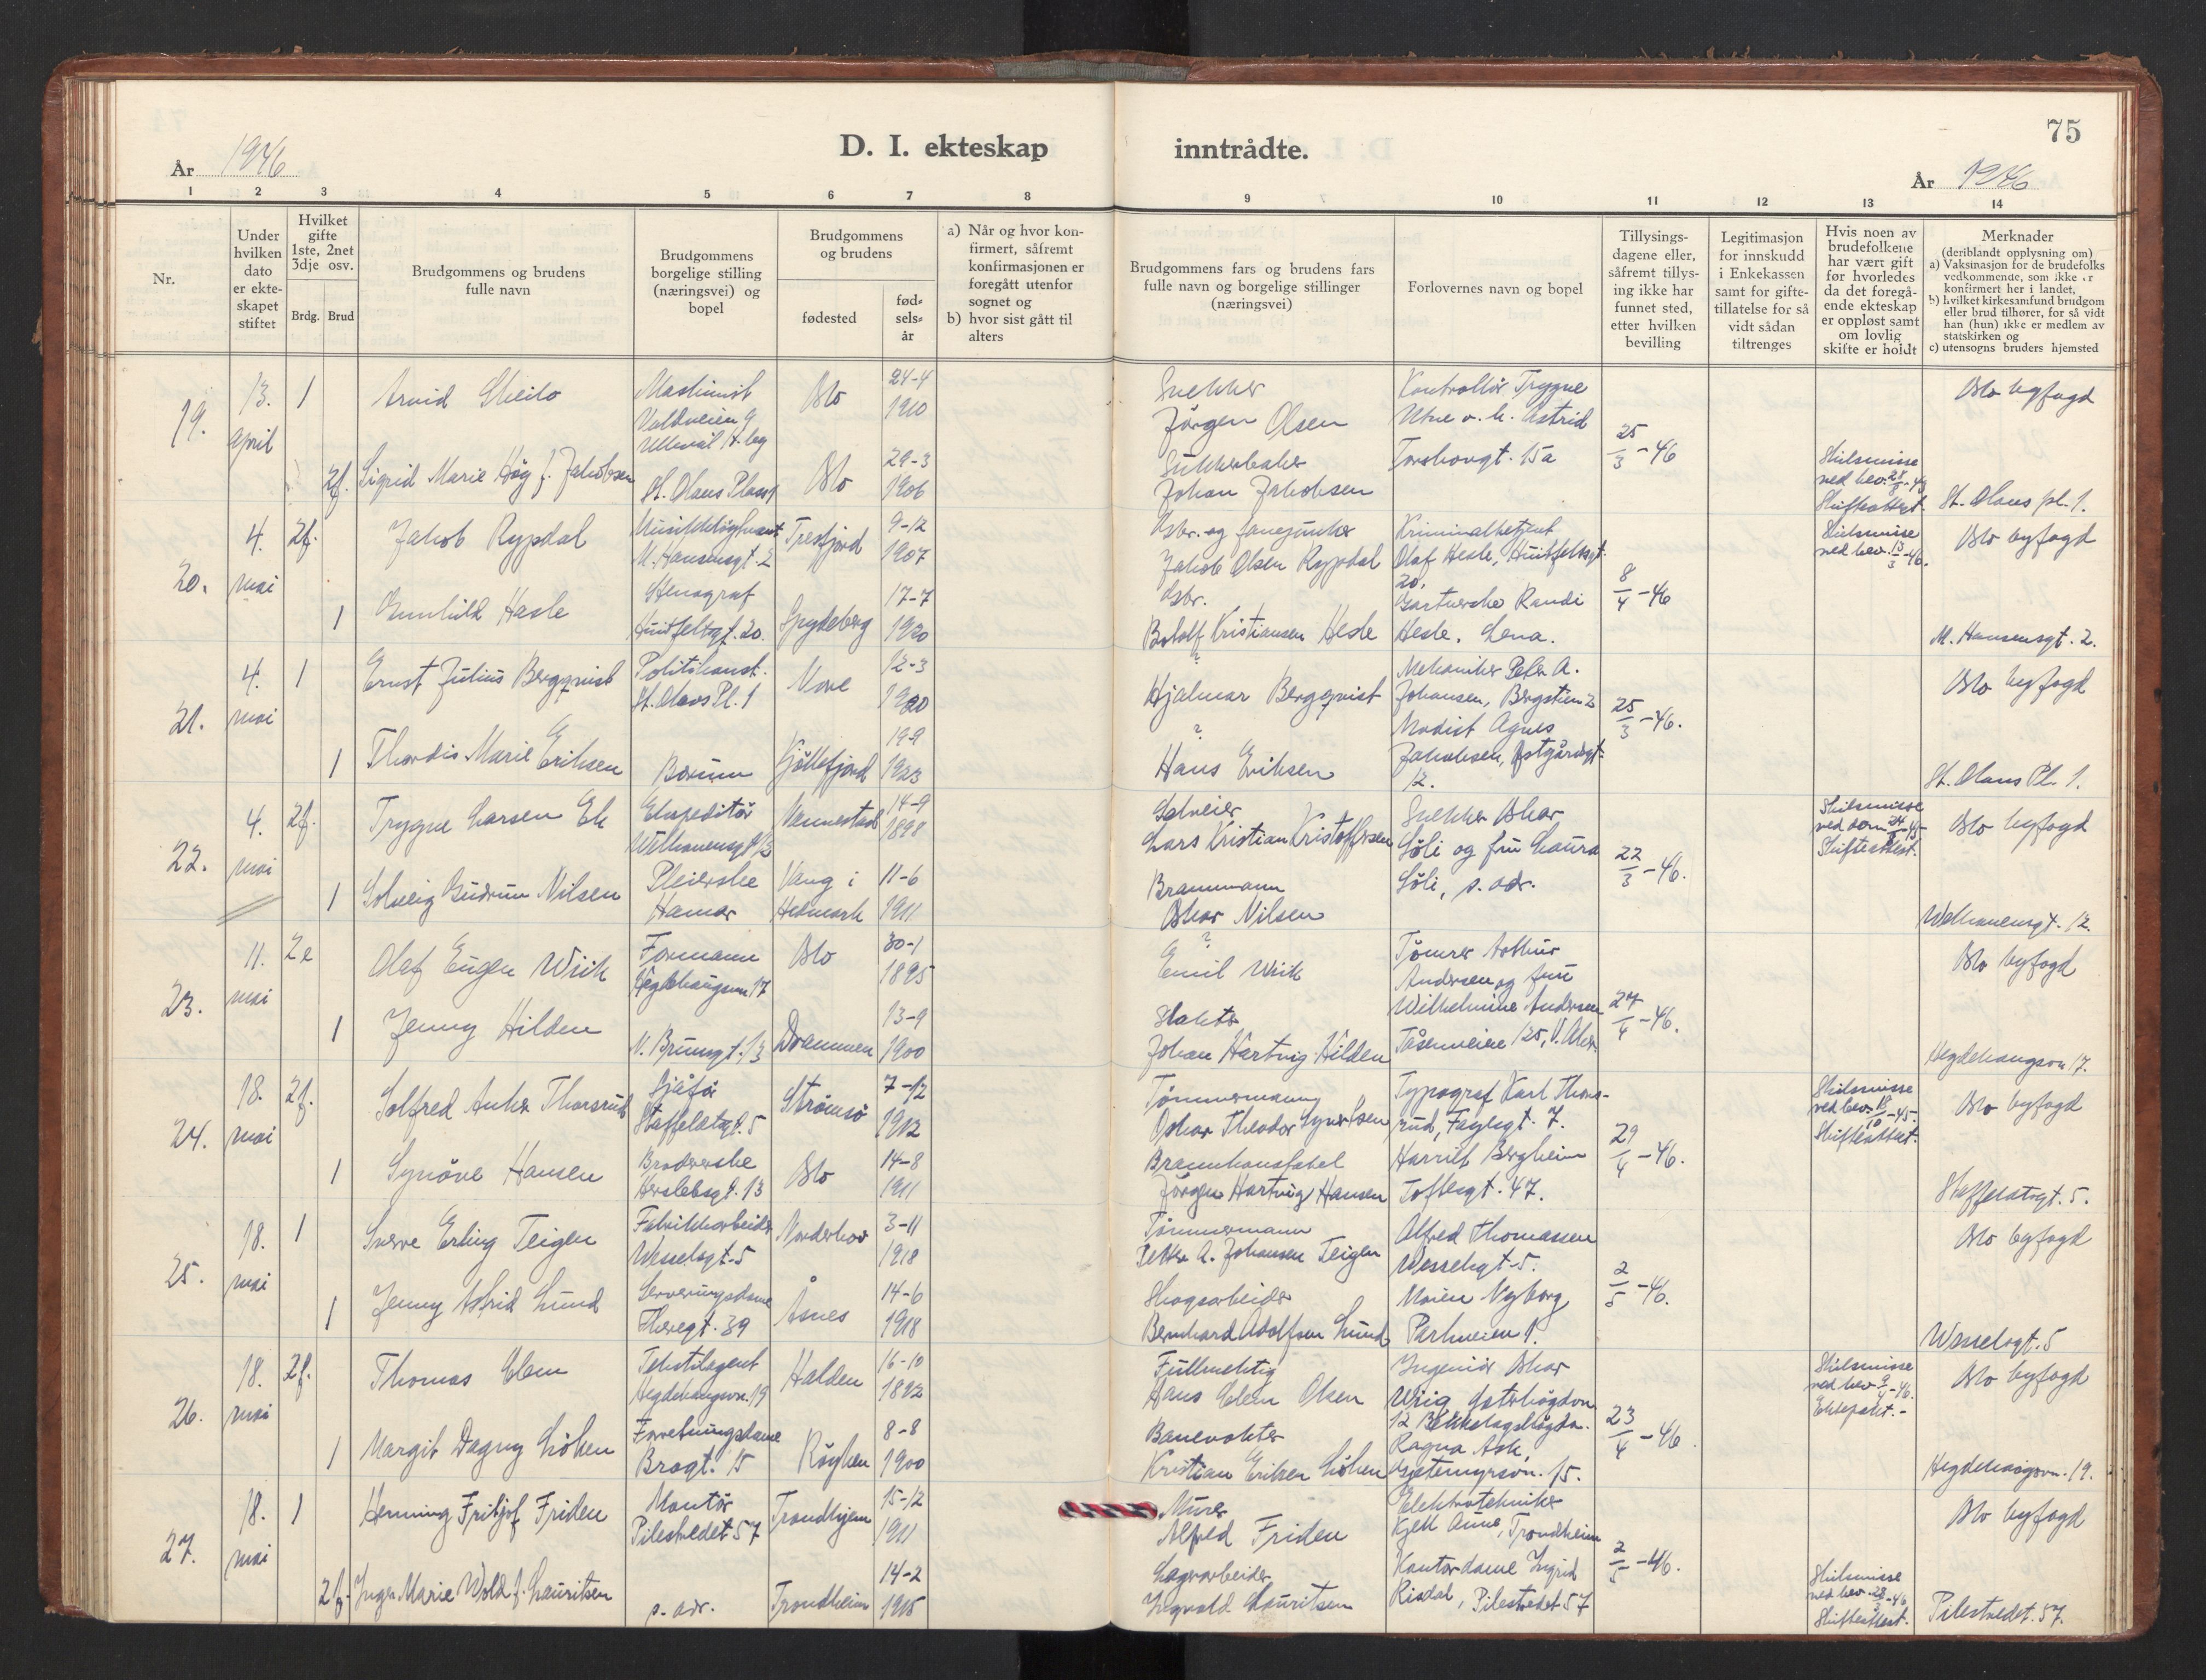 75
D. I. ekteskap inntrådte.
År 1946
År 1946
1 2 3 4 5 6 7 8 9 10 11 12 13 14
Nr.
Under
hvilken
dato
er ekte-
skapet
stiftet
Hvilket
gifte
1ste, 2net
3dje osv.
Brdg.
Brud
Brudgommens og brudens
fulle navn
Brudgommens
borgelige stilling
(næringsvei) og
bopel
Brudgommens
og brudens
fødested
fød-
sels-
år
a) Når og hvor kon-
firmert, såfremt
konfirmasjonen er
foregått utenfor
sognet og
b) hvor sist gått til
alters
Brudgommens fars og brudens fars
fulle navn og borgelige stillinger
(næringsvei)
Forlovernes navn og bopel
Tillysings-
dagene eller,
såfremt tillys-
ing ikke har
funnet sted,
etter hvilken
bevilling
Legitimasjon
for innskudd
i Enkekassen
samt for gifte-
tillatelse for så
vidt sådan
tiltrenges
Hvis noen av
brudefolkene
har vært gift
før hvorledes
da det foregå-
ende ekteskap
er oppløst samt
om lovlig
skifte er holdt
Merknader
(deriblandt opplysning om)
a) Vaksinasjon for de brudefolks
vedkommende, som ikke er
konfirmert her i landet,
b) hvilket kirkesamfund brudgom
eller brud tilhører, for så vidt
han (hun) ikke er medlem av
statskirken og
c) utensogns bruders hjemsted
19.
13.
april
1
Arvid
Maskinist
Ullevål
Oslo
24-4
1910
Snekker
Jörgen Olsen
Kontrollör Trygve
Utne o. h. Astrid
Torshovgt. 15a
25/3-46
Oslo byfogd
2f.
Sigrid Marie Høg f. Jakobsen
St. Olavs Plass 1
Oslo
29-3
1906
Johan Jakobsen
Skilsmisse
Skifteattest.
St. Olavs pl. 1.
20.
4.
mai
2f.
Jakob Rypdal
M. Hansensgt. 2
Tresfjord
9-12
1907
Jakob Olsen Rypdal
Kriminalbetjent
Olaf Hesle, Huitfeldtsgt.
20.
8/4-46
Skilsmisse
ved bev. 13/3-46.
Oslo byfogd
1
Gunhild Hasle
Stenograf
Huitfeltsgt. 20.
Spydeberg
17-7
1920
Gbr.
Kristiansen Hesle
Gartnerske Randi
Hesle. Lena.
M. Hansensgt. 2.
21.
4.
mai
1
Ernst Julius Bergqvist
Politikonst.
St. Olavs Pl. 1
12-3
1920
?
Hjalmar Bergqvist
Mekaniker Peter A.
Johansen, Bergstien 2
25/3-46.
Oslo byfogd
1
Thordis Marie Eriksen
Bærum
Kjöllefjord
19-9
1923
?
Hans Eriksen
Modist Agnes
Jakobsen, Østgårdsgt.
12.
St. Olavs Pl. 1.
22.
4.
mai
2f.
Trygve Larsen Ek
Ekspeditör
Welhavensgt. 12
14-9
1898
Lars Kristian Kristoffersen
Snekker Oskar
Söli og fru Laura
Söli, s. adr.
22/3-46.
Skilsmisse
Skifteattest.
Oslo byfogd
1
Solveig Gudrun Nilsen
Pleierske
Hamar
Vang i
Hedmark
11-6
1911
Brannmann
Oskar Nilsen
Welhavensgt. 12.
23.
11.
mai
2e
Olaf Eugen Wiik
Formann
Hegdehaugsvn 17
Oslo
30-1
1895
?
Emil Wiik
Tömrer Arthur
Andersen og fru
Wilhelmine Andersen
27/4-46.
Oslo byfogd
1
Jenny Hilden
N. Brunsgt. 13
Drammen
13-9
1900
Slakter
Johan Hartvig Hilden
Tåsenveien 125, V. Aker
Hegdehaugsvn 17.
24.
18.
mai
2f.
Solfred Anker Thorsrud
Sjåfør
Staffeldtsgt. 5
Strömsö
7-12
1912
Tömmermann
Oskar Theodor Syvertsen
Typograf Karl Thors-
rud, Faglegt. 7.
29/4-46.
Skilsmisse
ved bev. 18/10-45.
Skifteattest.
Oslo byfogd
1
Synöve Hansen
Broderske
Herslebsgt. 13
Oslo
14-8
1911
Jörgen Hartvig Hansen
Harriet Bergheim
Toftesgt. 47.
Staffeldtsgt. 5.
25.
18.
mai
1
Sverre Erling Teigen
Fabrikkarbeider
Wesselsgt. 5
Norderhov
3-11
1918
Tömmermann
Petter A. Johansen Teigen
Alfred Thomassen
Wesselsgt. 5.
2/5-46.
Oslo byfogd
1
Jenny Astrid Lund
Serveringsdame
Theresgt. 39
Åsnes
14-6
1918
Skogsarbeider
Bernhard Adolfsen Lund
Maien Nyborg
Parkveien 1.
Wesselsgt. 5
26.
18.
mai
2f.
Thomas Clem
Tekstilagent
Hegdehaugsvn. 19
Halden
16-10
1892
Fullmektig
Hans Clem Olsen
Ingeniör Oskar
Wiig
12 Bekkelagshögda.
23/4-46.
Skilsmisse
ved bev. 9/4-46.
Ektepakt.-
Oslo byfogd
1
Margit Dagny Löken
Forretningsdame
Brogt. 15
Röyken
8-8
1900
Banevokter
Kristian Eriksen Löken
Ragna Ask,
Geitemyrsvn. 15.
Hegdehaugsvn. 19.
27.
18.
mai
1
Henning Fritjof Friden
Montör
Pilestredet 57
Trondhjem
15-12
1911
Murer
Alfred Friden
Elektrotekniker
Kjell Aune, Trondheim
2/5-46.
Oslo byfogd
2f.
Inger Marie Wold f. Lauritsen
s. adr.
Trondheim
14-2
1915
Lagerarbeider
Ingvald Lauritsen
Kontordame Ingrid
Risdal, Pilestredet 57
Skilsmisse
ved bev. 28/3-46
Skifteattest.
Pilestredet. 57.